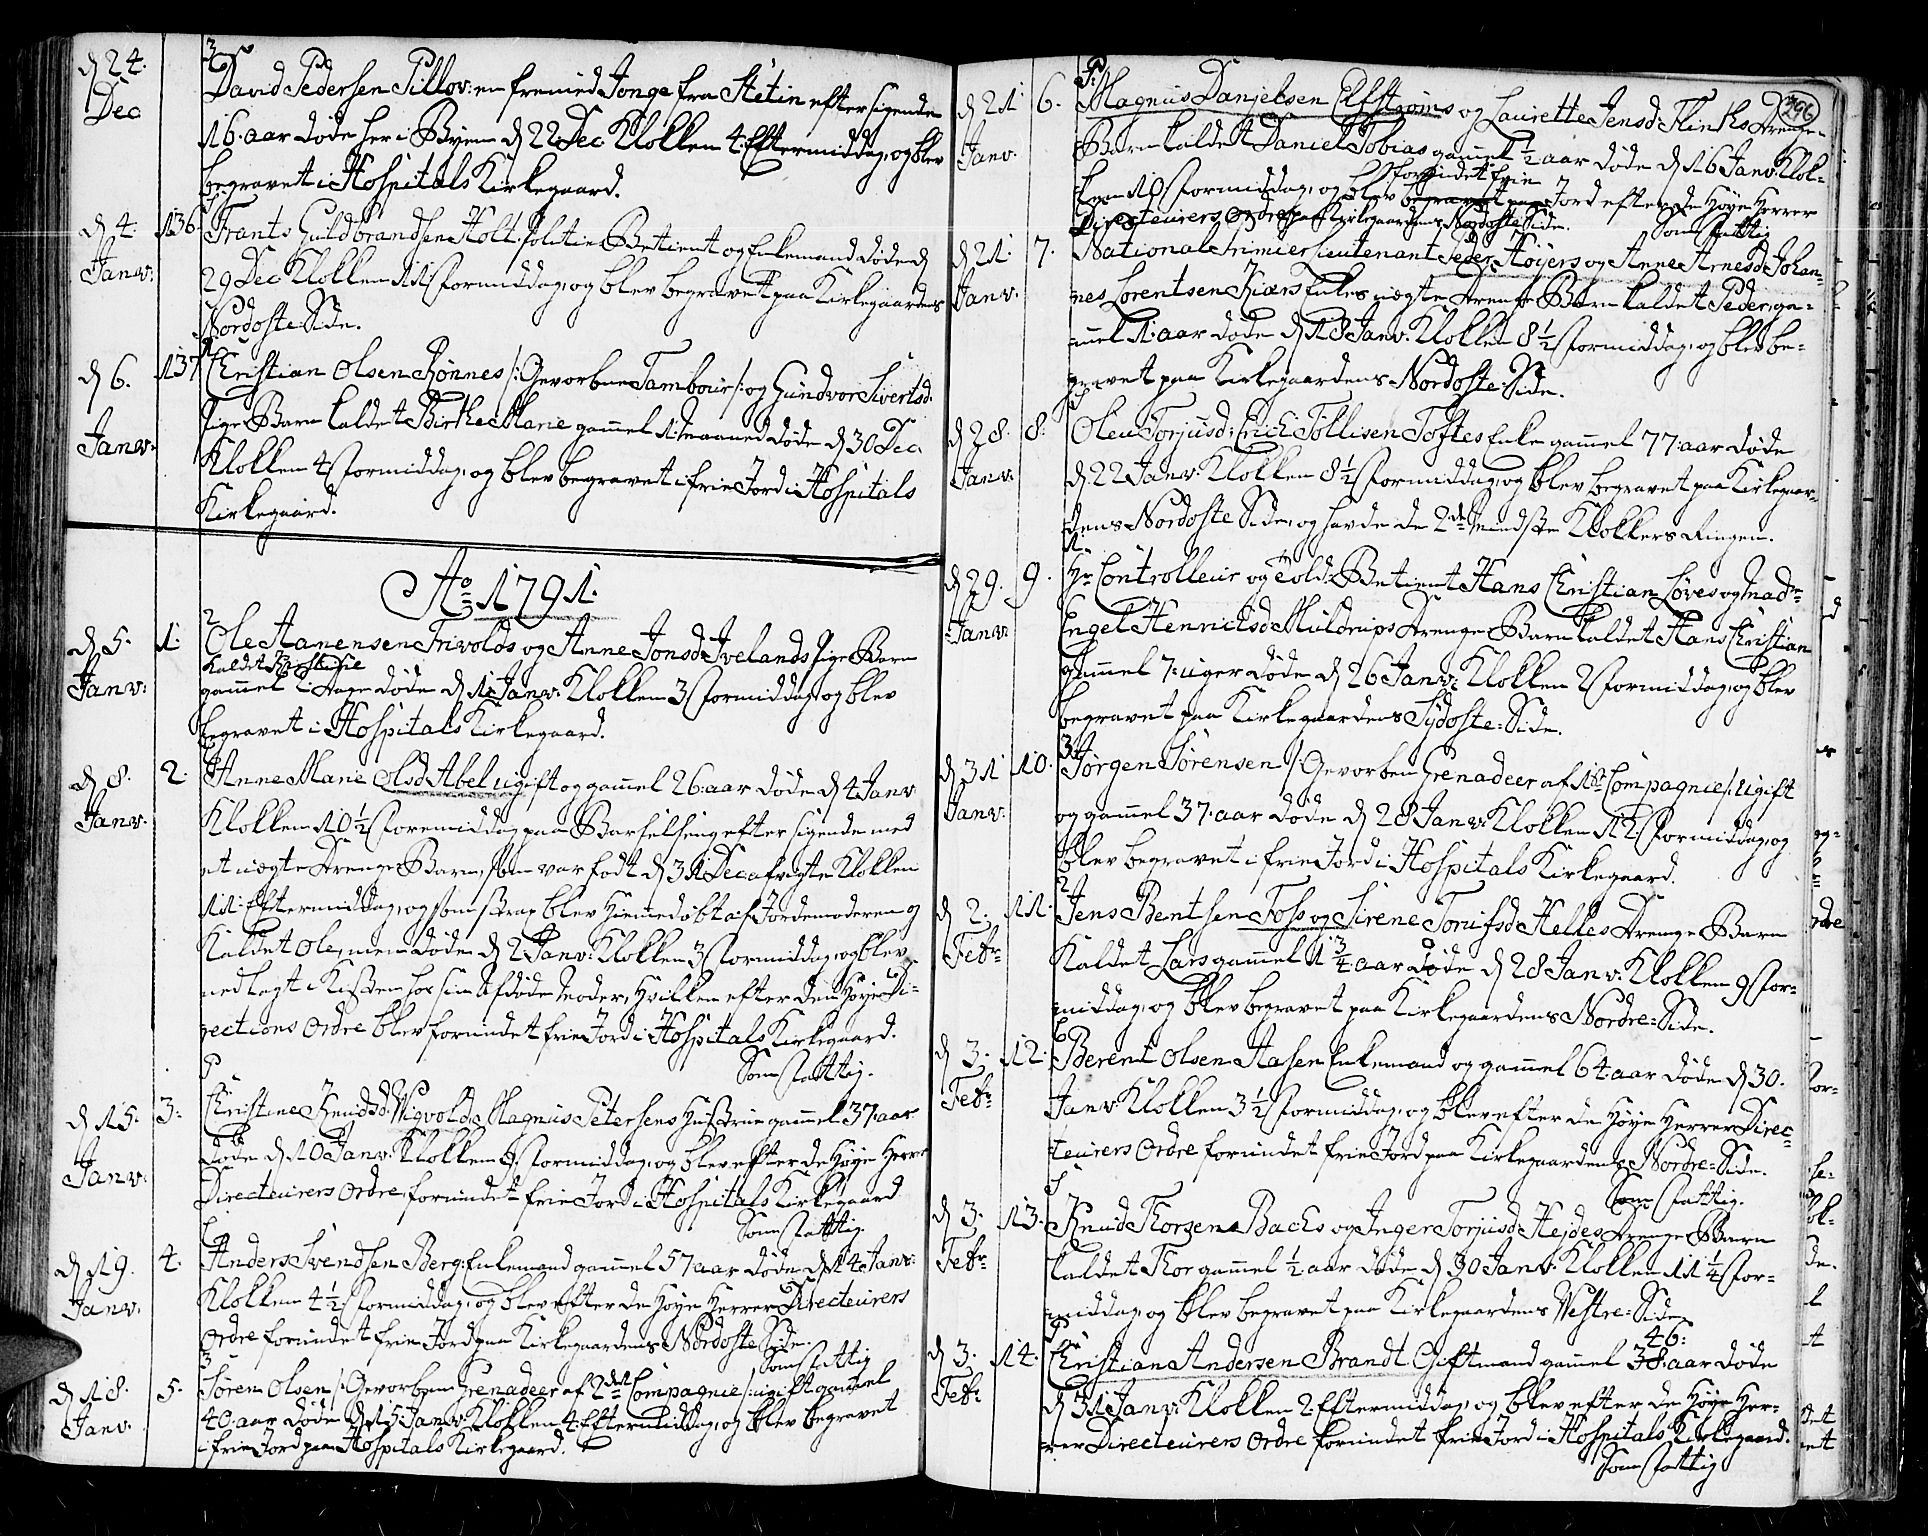 d 24. Dec
David Pedersen Pillov: en fremed Jonge fra Stetin efter sigende
16. aar døde her i Byen d 22 Dec Klokken 4. Eftermiddag, og blev
begravet i Hospitals Kirkegaard.
d 4. Janv: 136.
Frants Guldbrandsen Holt: Politie Betient og Enkemand døde d
29 Dec Klokken 11 Formiddag, og blev begravet paa Kirkegaardens
Nordoste Side.
d 6. Janv: 137
Christian Olsen Rønnes /: Gevorbne Tambour :/ og Gundvor Sivertsd.
Pige Barn kaldet Birthe Marie gammel 1 Maaned døde d 30 Dec.
Klokken 4 Formiddag, og blev begravet i frie Jord i Hospitals
Kirkegaard.
Ao 1791.
d 5. Janv: 1.
Ole Aanensen Frivolds og Anne Jonsd: Ivelands Pige Barn
kaldet
gammel Dage døde d 1 Janv: Klokken 3 Formiddag, og blev
begravet i Hospitals Kirkegaard.
d 8. Janv. 2.
Anne Marie Olsd Abel ugift og gammel 26. aar døde d 4 Janv
Klokken 10½ Foremiddag paa Barselseng efter sigende med
et uægte Drenge Barn, som var født d 31 Dec afvigte Klokken
11 Eftermiddag, og som strax blev Hiemedøbt af Jordemoderen og
Kaldet Ole, men døde d 2 Janv: Klokken 3 Formiddag, og blev
nedlagt i Kisten hos sin Afdøde Moder, Hvilken efter den Høye Di-
rections Ordre blev forundet frie Jord i Hospitals Kirkegaard.
Som Fattig.
d 15. Janv: 3.
Christine Knudsd: Vigvolds Magnus Petersens Hustrue gammel 37 aar
døde d 10 Janv: Klokken 9. Formiddag, og blev efter de Høye Herrer
Directeurers Ordre forundet frie Jord i Hospitals Kirkegaard
Som Fattig.
d 19. Janv. 4.
Anders Svendsen Berg: Enkemand gammel 57 aar døde d 14 Janv:
Klokken 4½ Formiddag, og blev efter de Høye Herrer Directeurers
Ordre forundet frie Jord paa Kirkegaardens Nordoste Side.
Som Fattig
d 18. Janv. 5.
Søren Olsen /: Gevorben Grenadeer af 2det Compagnie :/ ugift gammel
40. aar døde d 15 Janv: Klokken 4. Eftermiddag, og blev begravet
i frie Jord paa Hospitals Kirkegaard.
296
d 21 Janv. 6.
Magnus Danjelsen og Laurette Jensd: Flinks Drenge-
Barn kaldet Daniel Tobias gammel ½ aar døde d 16 Janv. Klok-
ken 10 Formiddag, og blev forundet frie Jord efter de Høye Herrer
Directeurers Ordre paa Kirkegaardens Nordoste Side.
Som Fattig
d 21. Janv. 7.
National Premier Lieutenant Peder Høyers og Anne Arnesd Johan-
nes Lorentsen Kiærs Enkes uægte Drenge Barn kaldet Peder ga-
mmel 1. aar døde d 18 Janv. Klokken 8½ Formiddag, og blev be-
gravet paa Kirkegaardens Nordoste Side.
d 28. Janv. 8.
Olea Torjusd: Erich Tollisen Toftes Enke gammel 77. aar døde
d 22 Janv. Klokken 8½ Formiddag, og blev begravet paa Kirkegaar-
dens Nordoste Side, og havde de 2de mindste Klokkers Ringen.
d 29. Janv. 9.
Hr Controlleur og Told: Betient Hans Christian Løves og Madm
Engel Henrichsd: Muldrups Drenge Barn kaldet Hans Christian
gammel 7. uger døde d 26 Janv: Klokken 2 Formiddag, og blev
begravet paa Kirkegaardens Sydoste Side.
d 31 Janv. 10.
Jørgen Sørensen /: Gevorben Grenadeer af 1ste Compagnie :/ ugift
og gammel 37. aar døde d 28 Janv. Klokken 12 Formiddag, og
blev begravet i frie Jord i Hospitals Kirkegaard.
d 2. Febr 11.
Jens Bentsen Foss og Sirene Helles Drenge Barn
Kaldet Lars gammel 1¾ aar døde d 28 Janv. Klokken 9 For-
middag, og blev begravet paa Kirkegaardens Nordre Side.
d 3. Febr 12.
Berent Olsen Aasen Enkemand og gammel 64. aar døde d 30.
Janv. Klokken 3½ Formiddag, og blev efter de Høye Herrer Direc-
teurers Ordre forundet frie Jord paa Kirkegaardens Nordre Side.
Som Fattig.
d 3. Febr 13.
Knud Thorsen Bachs og Inger Torjusd: Hejdes Drenge Barn
kaldet Thor gammel ½ aar døde d 30 Janv. Klokken 11¼ For-
middag, og blev begravet paa Kirkegaardens Vestre Side
d 3. Febr 14.
Christian Andersen Brandt Giftmand gammel 46: 38. aar døde
d 31 Janv: Klokken 2. Eftermiddag, og blev efter de Høye Her-
rer Directeurers Ordre forundet frie Jord i Hospitals Kirkegaard.
Som Fattig